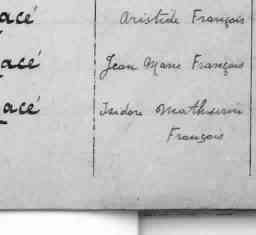 acé Aristide François
acé Jean Marie François
acé Isidore Mathurin
François